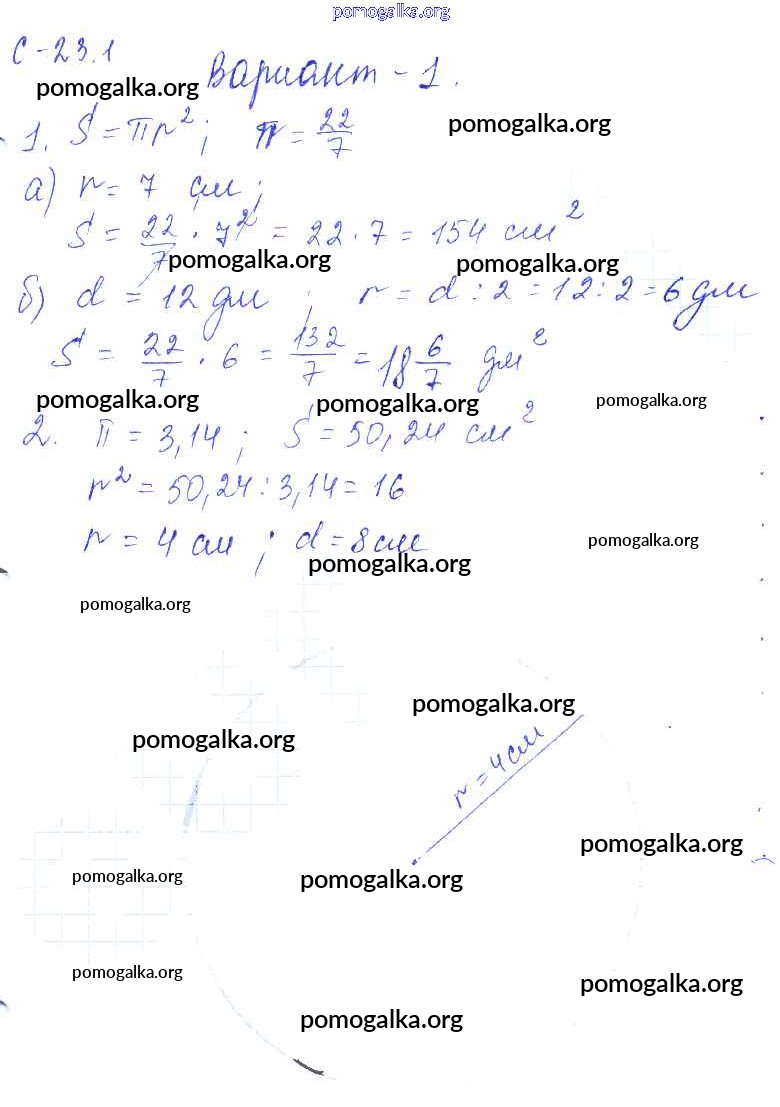 pomogalka.org
С-23.1
pomogalka.org Вариант-1.
1. S=πr²; π=22/7 pomogalka.org
а) r=7 см;
S=22/7·7²=22·7=154 см²
pomogalka.org pomogalka.org
б) d=12 дм; r=d:2=12:2=6 дм
S=22/7·6=132/7=18 6/7 дм²
pomogalka.org pomogalka.org pomogalka.org
2. π=3,14; S=50,24 см²
r²=50,24:3,14=16
r=4 см; d=8 см pomogalka.org
pomogalka.org
pomogalka.org
pomogalka.org
pomogalka.org
r=4 см
pomogalka.org
pomogalka.org pomogalka.org
pomogalka.org
pomogalka.org pomogalka.org